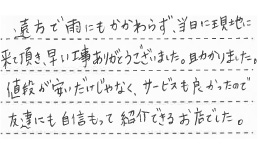 遠方で雨にもかかわらず、当日に現地に
来て頂き、早い工事ありがとうございました。助かりました。
値段が安いだけじゃなく、サービスも良かったので
友達にも自信もって紹介できるお店でした。